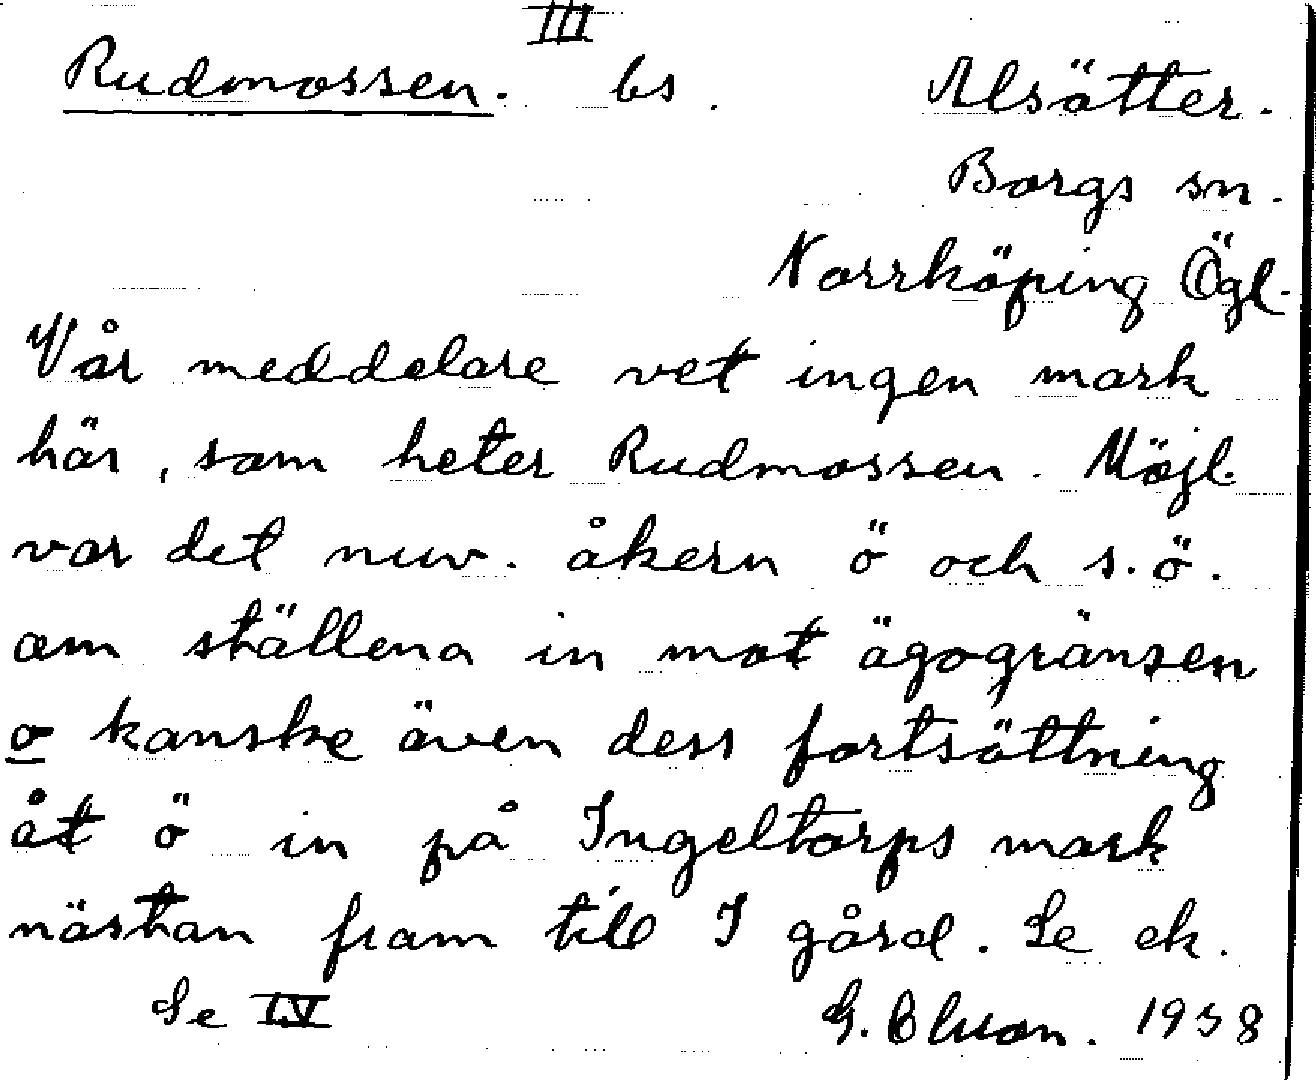 III
Rudmossen. bs. Alsätter.
Borgs sn.
Norrköping Ögl.
Vår meddelare vet ingen mark
här, som heter Rudmossen. Möjl.
var det nuv. åkern ö och s.ö.
om ställena in mot ägogränsen
o kanske även dess fortsättning
åt ö in på Ingeltorps mark
nästan fram till I gård. Se ek.
Se IV G. 1938